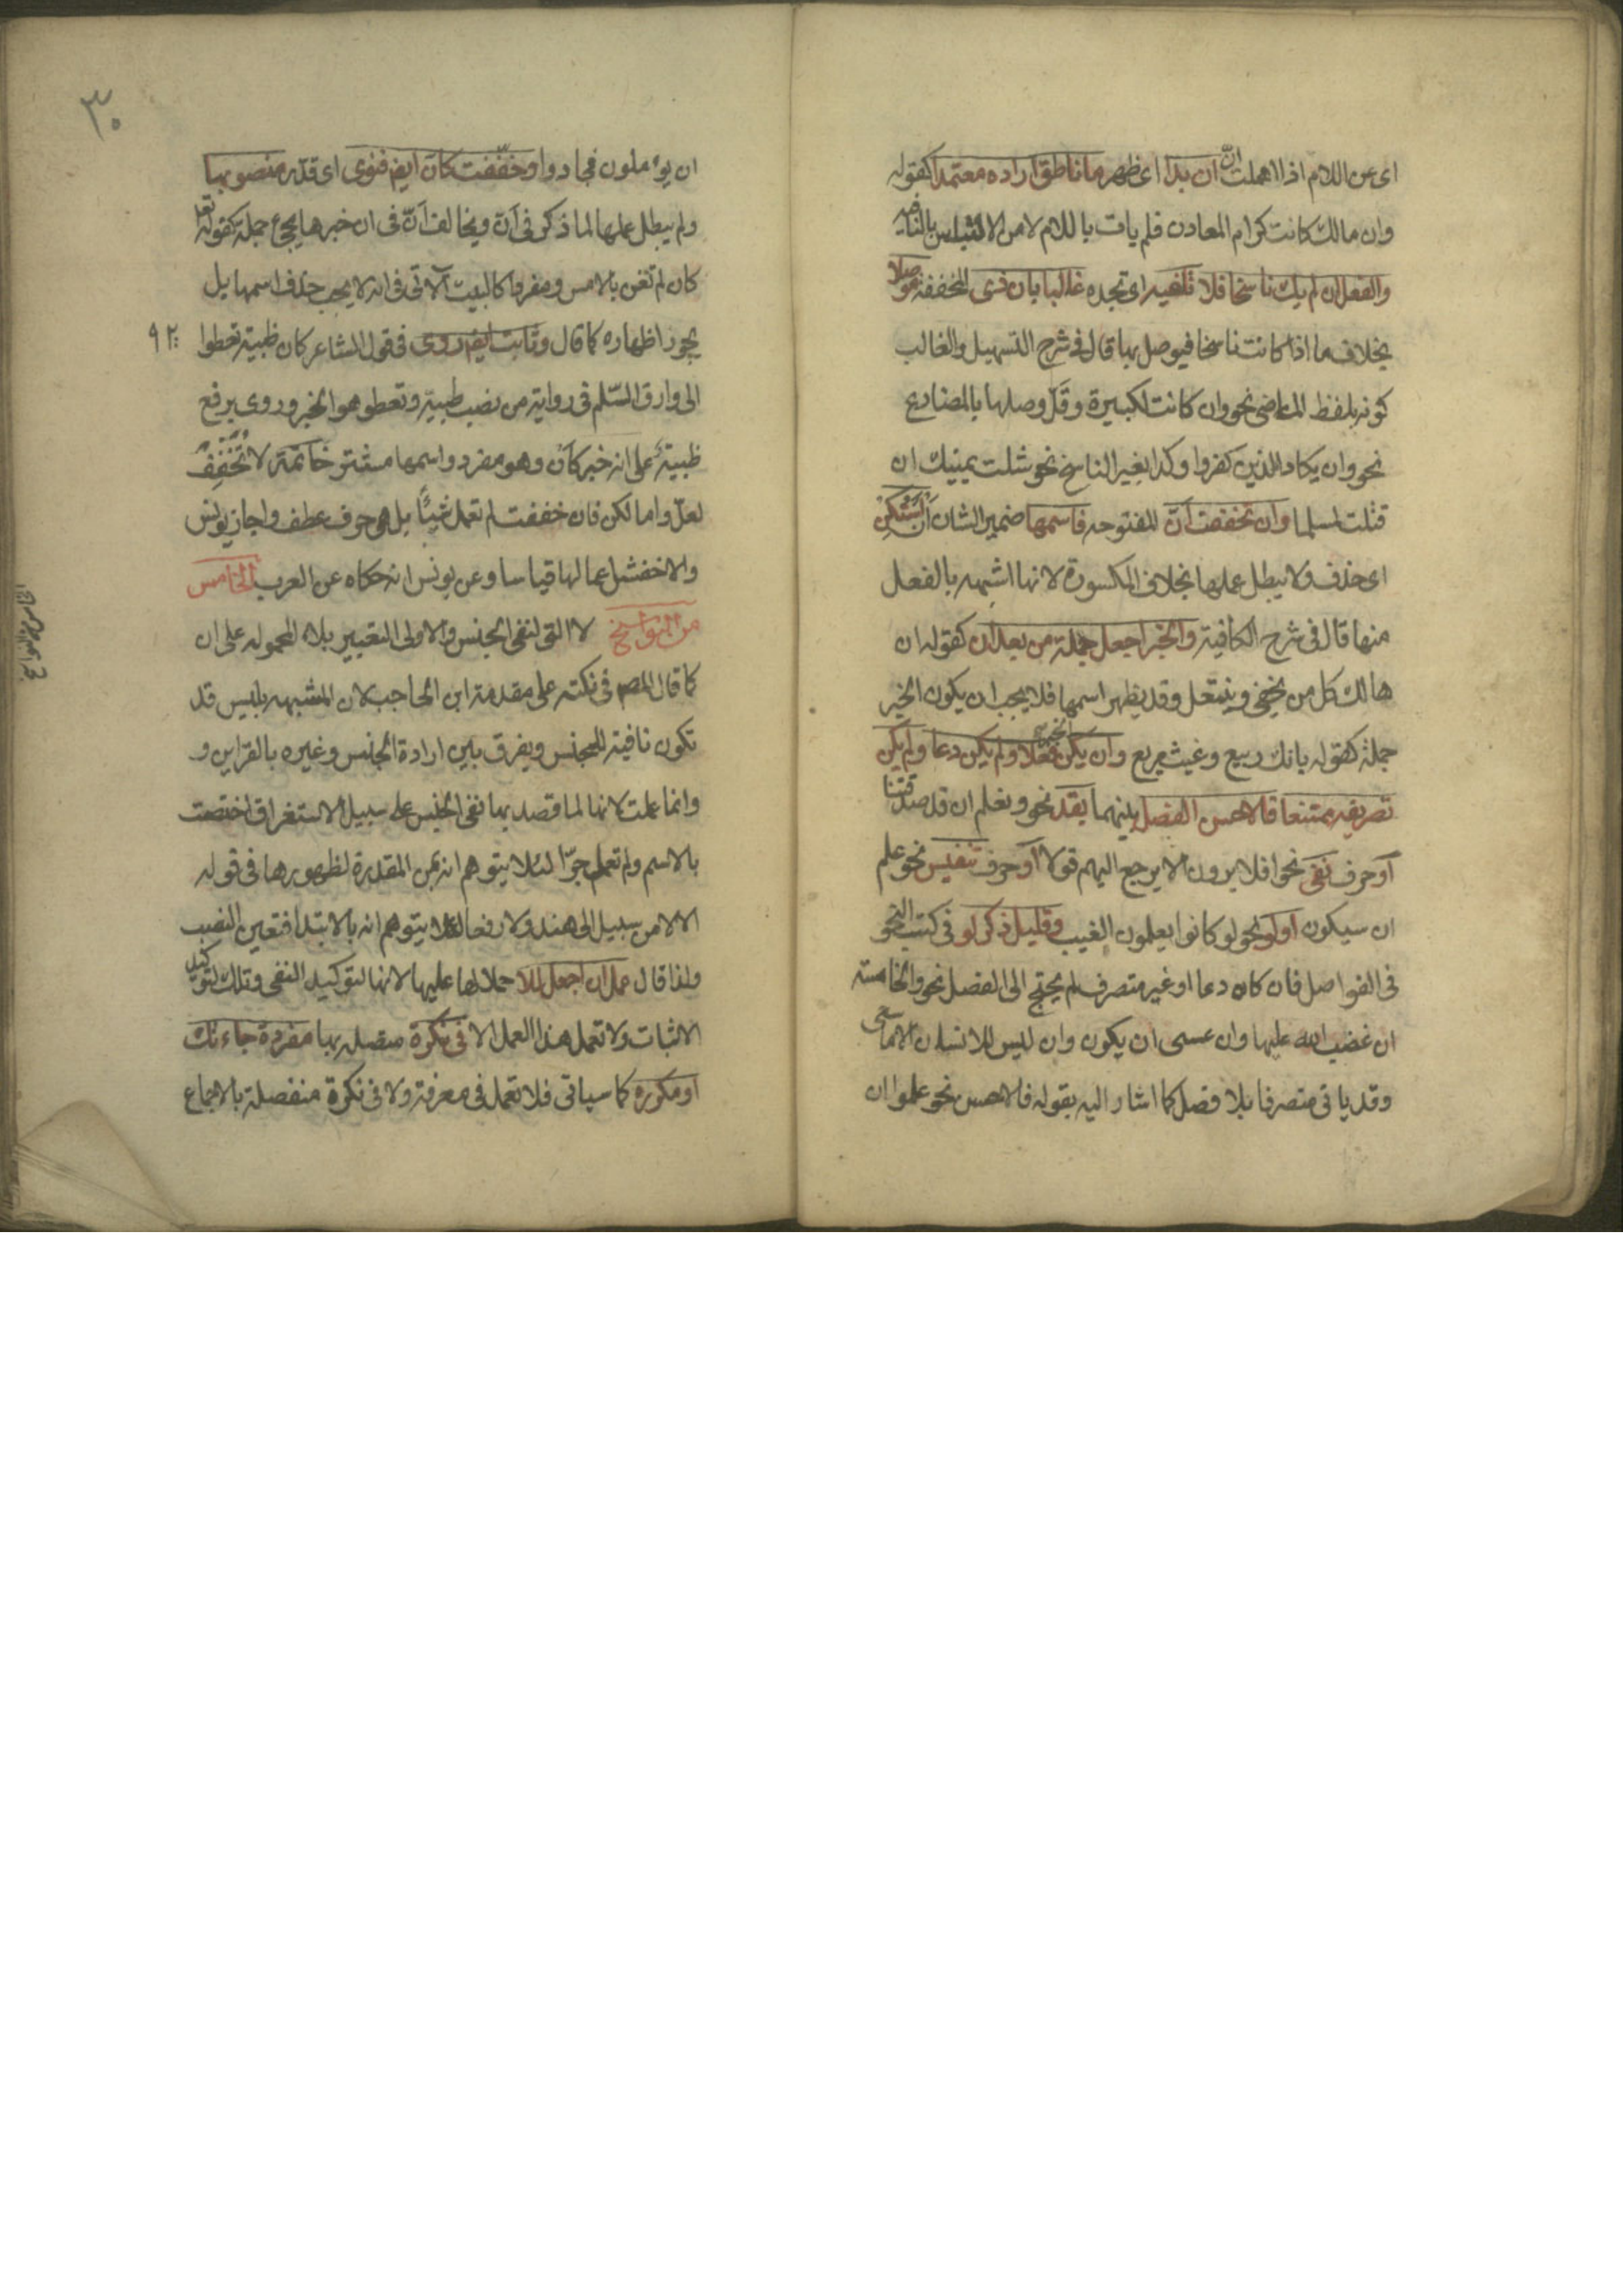 اى عن اللام اذا اهملت انّ ان بدا اى ظهر ما ناطق اراده معتمدا كقوله
وان مالك كانت كرام المعادن فلم يات باللام لامن الالتباس بالنافيه
والفعل ان لم يك ناسخا فلا تلفيه اى تجده غالبا بان ذى المخففة موصلا
بخلاف ما اذا كانت ناسخا فيوصل بها قال فى شرح التسهيل والغالب
كونه بلفظ الماضى نحو وان كانت لكبيرة وقلّ وصلها بالمضارع
نحو وان يكاد الذين كفروا وكذا بغير الناسخ نحو شلت يمينك ان
قتلت لمسلما وان تخفف انّ المفتوحه فاسمها ضمير الشان استكن
اى حذف ولا يبطل عملها بخلاف المكسورة لانها اشبهه بالفعل
منها قال فى شرح الكافية والخبر اجعل جملة من بعد ان كقوله ان
هالك كل من يخفى وينتعل وقد يظهر اسمها فلا يجب ان يكون الخبر
جملة كقوله بانك ربيع وغيث مريع وان يكن الخبر فعلا ولم يكن دعا ولم يكن
تصريفه ممتنعا فالاحسن الفصل بينهما بقد نحو ونعلم ان قد صدقتنا
او حرف نفى نحو افلا يرون الا يرجع اليهم قولا او حرف تنفيس نحو علم
ان سيكون او لو نحو لو كانوا يعلمون الغيب وقليل ذكر لو فى كتب النحو
فى الفواصل فان كان دعا او غير متصرف لم يحتج الى الفصل نحو والخامسة
ان غضب الله عليها وان عسى ان يكون وان ليس للانسان الا ما سعى
وقد ياتى متصرفا بلا فصل كما اشار اليه بقوله فالاحسن نحو علموا ان
٣٠
ان يؤملون فجادوا وخففت كانّ ايض فنوى اى قدّر منصوبها
ولم يبطل عملها لما ذكر فى انّ ويخالف انّ فى ان خبرها يجئ جملة كقوله تعا
كان لم تغن بالامس ومفردا كالبيت الاتى فى انه لا يجب حذف اسمها بل
يجوز اظهاره كما قال وثابت ايض روى فى قول الشاعر كان ظبية تعطوا
الى وارق السّلم فى رواية من نصب ظبية وتعطو هو الخبر وروى برفع
ظبية على انه خبر كانّ وهو مفرد واسمها مستتر خاتمة لا تخفف
لعلّ واما لكن فان خففت لم تعمل شيئا بل هو حرف عطف واجاز يونس
والاخفش اعمالها قياسا وعن يونس انه حكاه عن العرب الخامس
من النواسخ لا التى لنفى الجنس والاولى التعبير بلا المحموله على ان
كما قال المصه فى نكته على مقدمة ابن الحاجب لان المشبهه بليس قد
تكون نافية للجنس ويفرق بين ارادة الجنس وغيره بالقراين و
وانما عملت لانها لما قصد بها نفى الجنس على سبيل الاستغراق اختصت
بالاسم ولم تعمل جرّا لئلا يتوهم انه بمن المقدرة لظهورها فى قوله
الا لا من سبيل الى هند ولا رفعا لئلا يتوهم انه بالابتدا فتعين النصب
ولذا قال عمل ان اجعل للا حملا لها عليها لانها لتوكيد النفى وتلك لتوكيد
الاثبات ولا تعمل هذا العمل الا فى نكرة متصله بها مفردة جاءتك
او مكرره كما سياتى فلا تعمل فى معرفة ولا فى نكرة منفصلة بالاجماع